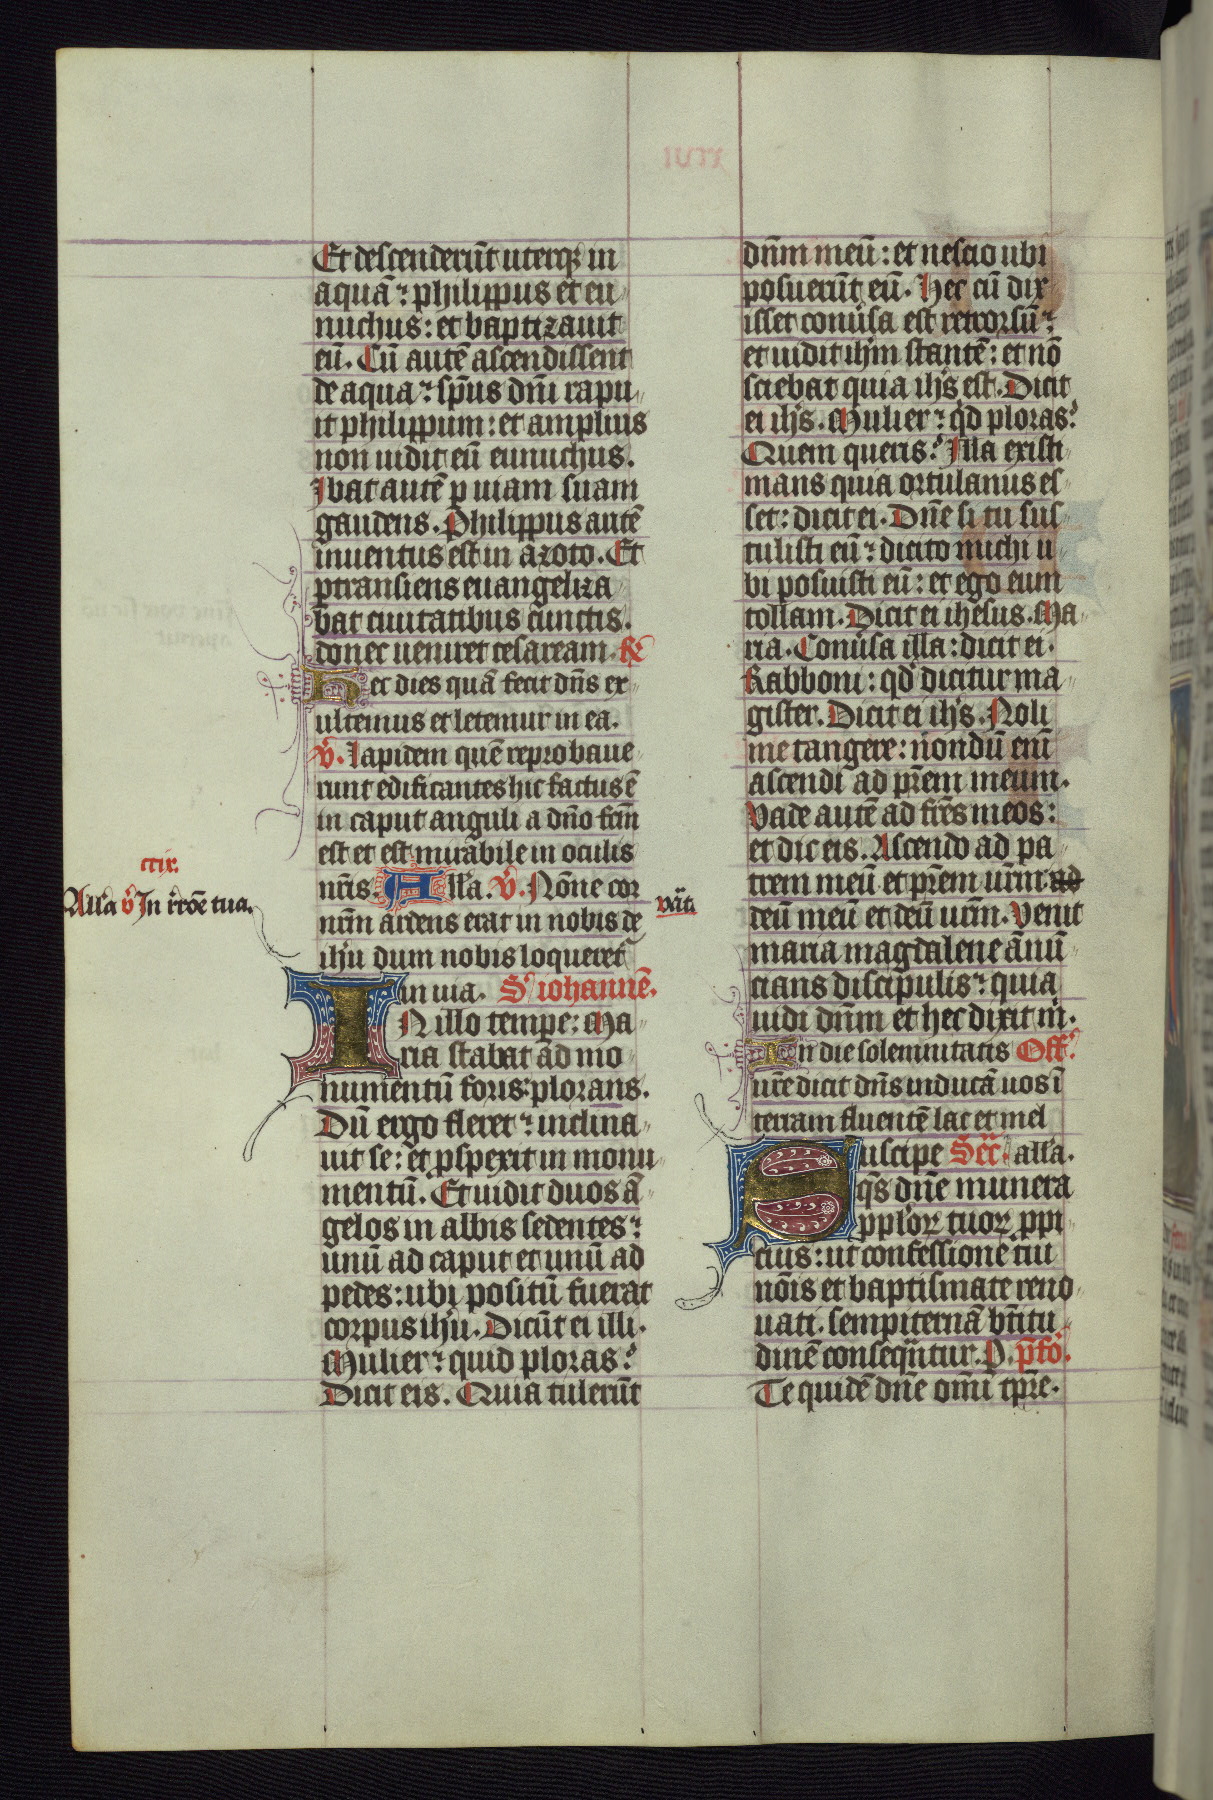 Et descenderūt uterqꝫ in
aquā: philippus et eu
nuchus: et baptizauit
eū. Cū autē ascendissent
de aqua: sp̄us dn̄i rapu
it philippum: et amplius
non uidit eū eunuchus.
Ibat autē ꝑ uiam suam
gaudens. Philippus autē
inuentus est in azoto. Et
ꝑtransiens euangeliza
bat ciuitatibus cunctis.
donec ueniret cesaream.
Hec dies quā fecit dn̄s ex
ultemus et letemur in ea.
v̄. Lapidem quē reprobaue
runt edificantes hic factus ē
in caput anguli a dn̄o fc̄m
est et est mirabile in oculis
nr̄is. All'a. v̄. Nōne cor
nr̄m ardens erat in nobis de
ih'u dum nobis loqueret᷑
in uia. S' iohannē.
IN illo tempe: Ma
ria stabat ad mo
numentū foris: plorans.
Dū ergo fleret: inclina
uit se: et ꝓspexit in monu
mentū. Et uidit duos ā
gelos in albis sedentes:
unū ad caput et unū ad
pedes: ubi positū fuerat
corpus ih'u. Dicūt ei illi.
Mulier: quid ploras?
Dicit eis. Quia tulerūt
ccix.
All'a v̄ In r̄r̄ōe tua.
dn̄m meū: et nescio ubi
posuerūt eū. Hec cū dix
isset conūsa est retrorsū:
et uidit ih'm stantē: et nō
sciebat quia ih's est. Dicit
ei ih's. Mulier: qd ploras?
Quem queris? Illa existi
mans quia ortulanus es
set: dicit ei. Dn̄e si tu sus
tulisti eū: dicito michi u
bi posuisti eū: et ego eum
tollam. Dicit ei ihesus. Ma
ria. Conūsa illa: dicit ei.
Rabboni: qd' dicitur ma
gister. Dicit ei ih's. Noli
me tangere: nondū enī
ascendi ad pr̄em meum.
Vade autē ad fr̄es meos:
et dic eis. Ascendo ad pa
trem meū et pr̄em ur̄m ad
deū meū et deū ur̄m. Venit
maria magdalene ānū
cians discipulis: quia
uidi dn̄m et hec dixit m̄.
In die solemnitatis Off.
ur̄e dicit dn̄s inducā uos ī
terram fluentē lac et mel
all'a. Suscipe Secr.
qs dn̄e munera
ppl'oꝝ tuoꝝ ppi
cius: ut confessione tui
nōis et baptismate reno
uati. sempiternā bt̄itu
dinē consequātur. P. p̄fō.
Te quidē dn̄e om̄i tp̄re.